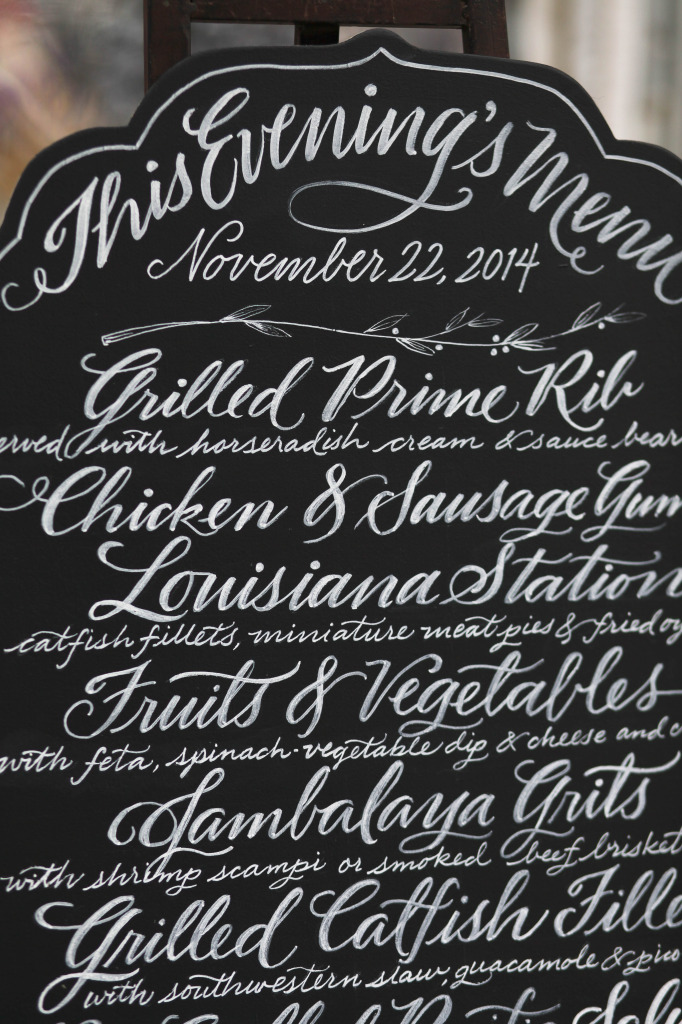 This Evening's Menu
November 22, 2014
Grilled Prime Rib
erved with horseradish cream & sauce bear
Chicken & Sausage Gum
Louisiana Station
catfish fillets, miniature meat pies & fried oy
Fruits & Vegetables
with feta, spinach-vegetable dip & cheese and c
Jambalaya Grits
with shrimp scampi or smoked beef brisket
Grilled Catfish Fille
with southwestern slaw, guacamole & pico